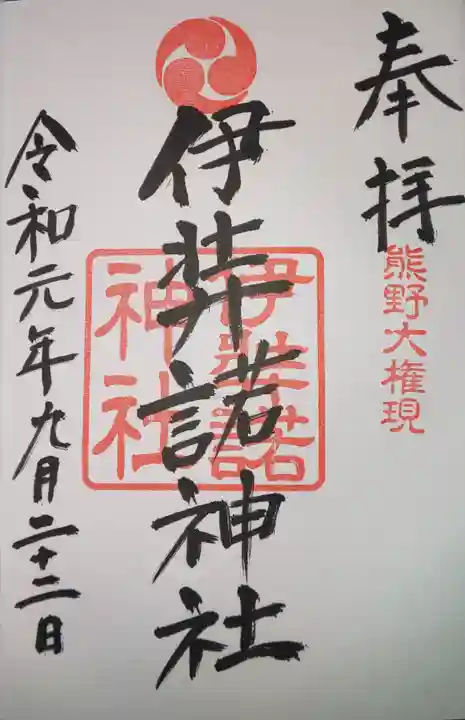 奉拝
熊野大権現
伊弉諾神社
伊弉諾
神社
令和元年九月二十二日